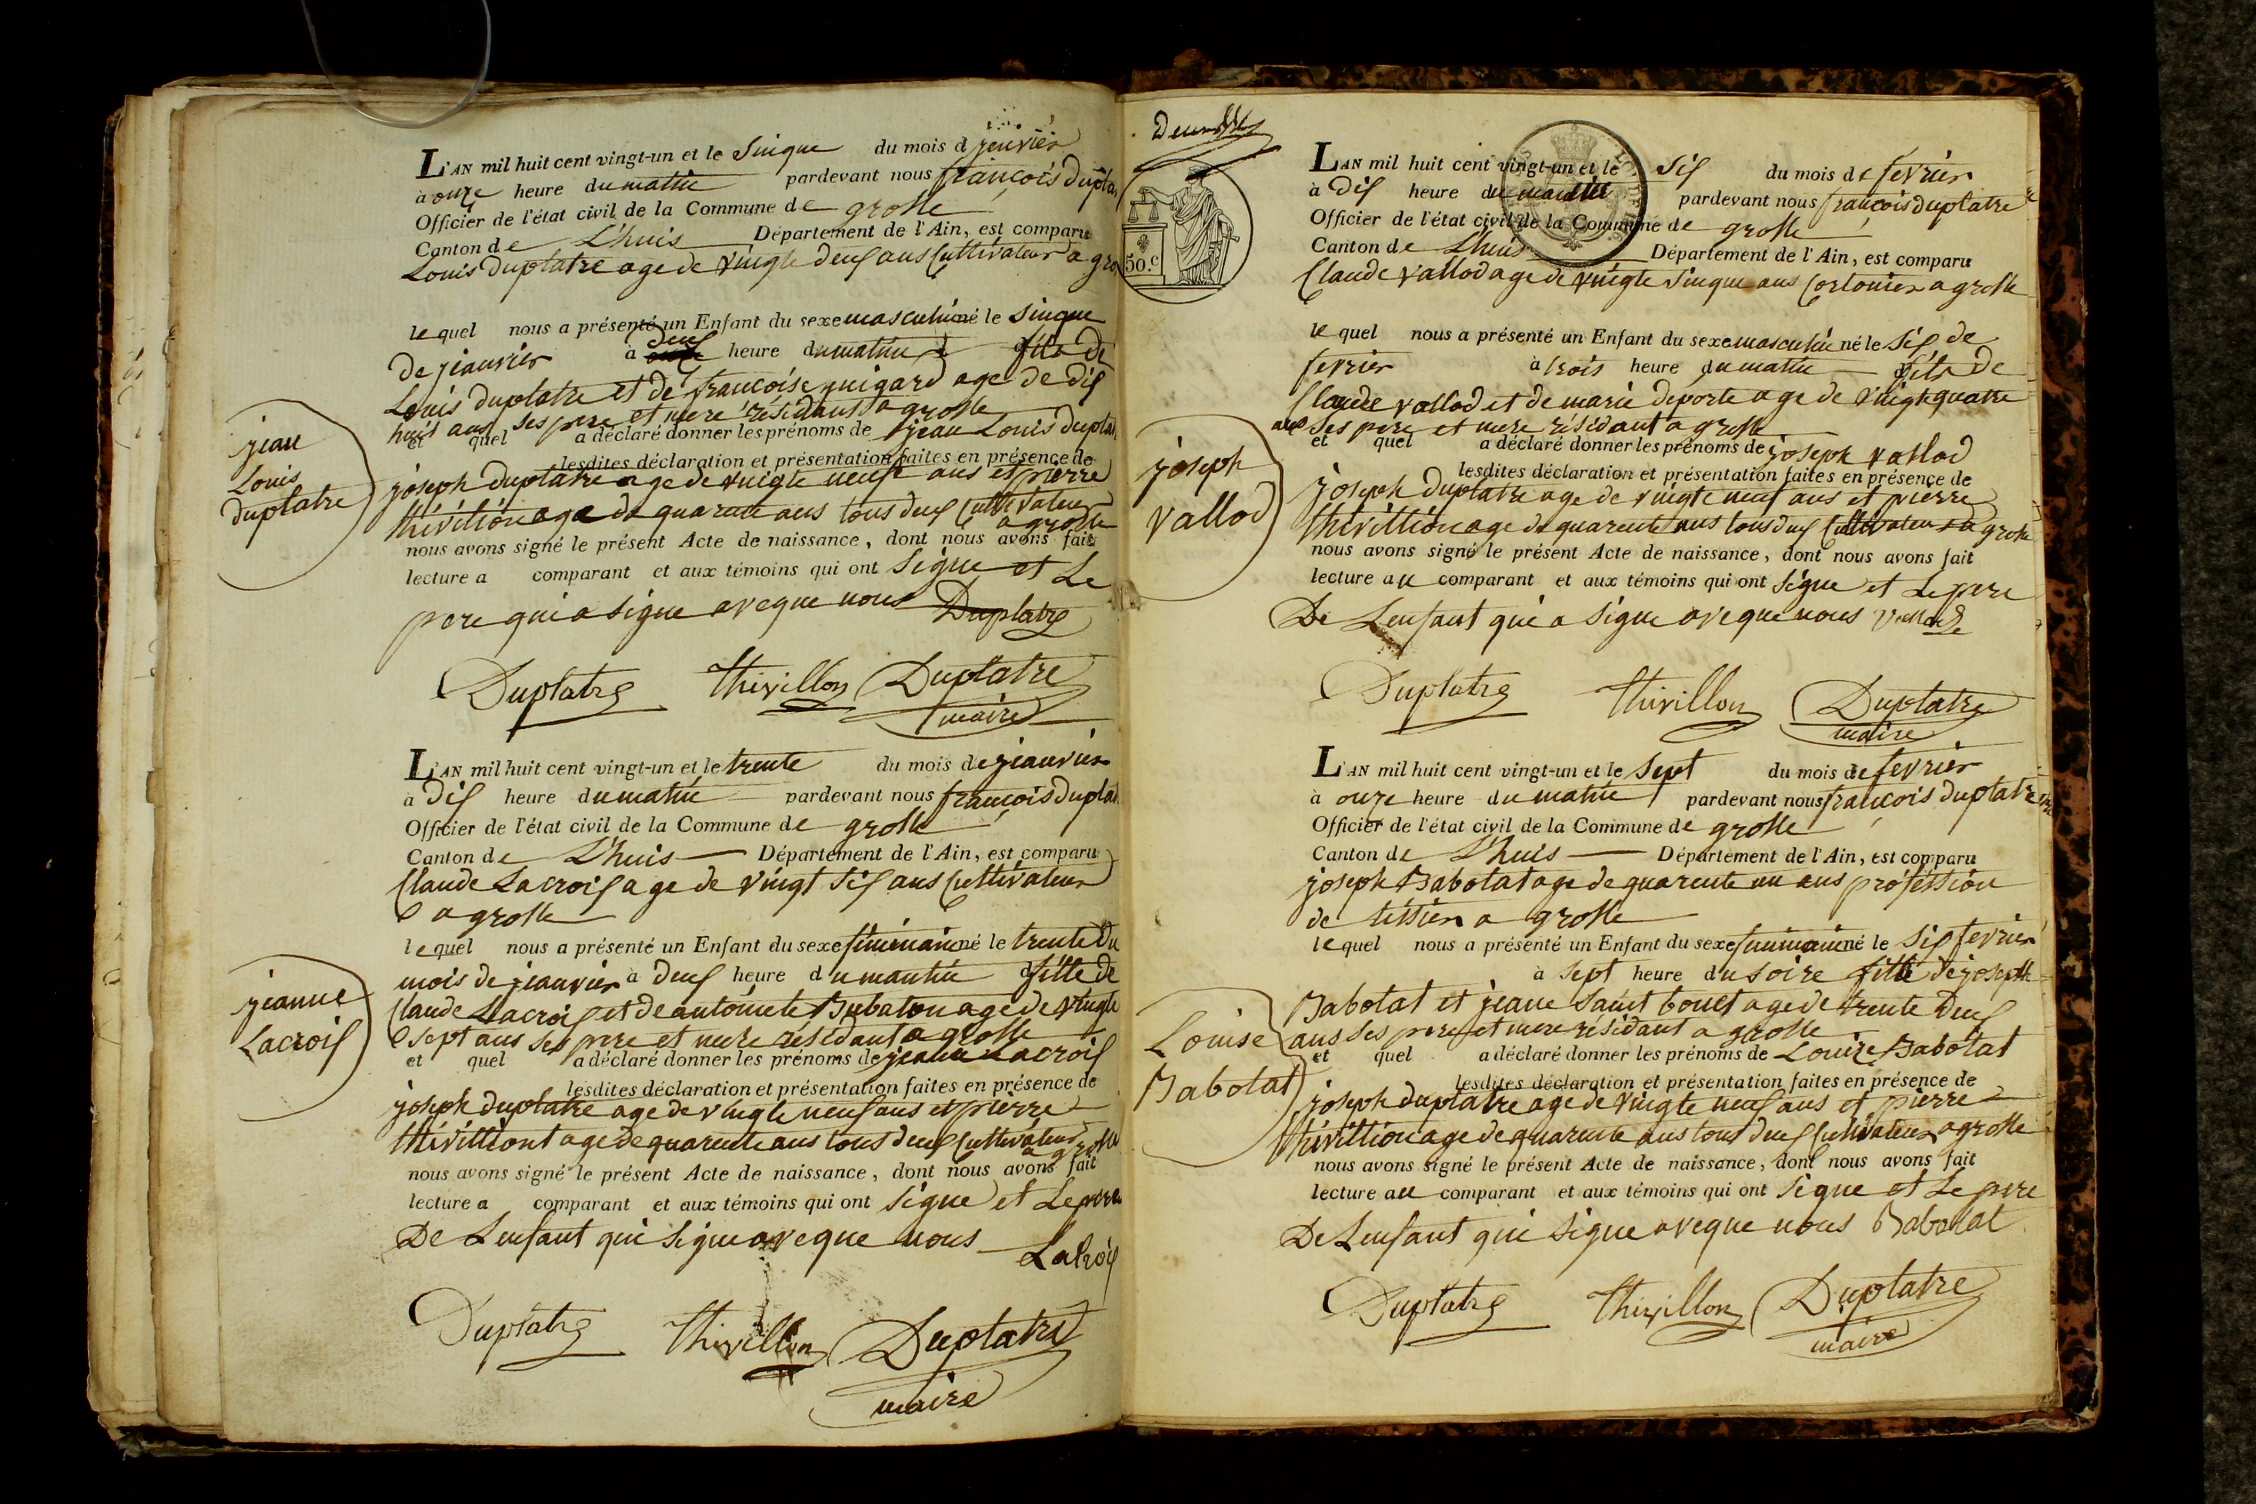 L'AN mil huit cent vingt-un et le Sinque du mois d jenvier
à onze heure du matin pardevant nous françois dupla
Officier de l'état civil de la Commune de grolle
Canton de L'huis Département de l'Ain, est comparu
Louis duplatre age de vingte deux ans Cultivateur a gro
le quel nous a présenté un Enfant du sexe masculin né le sinque
de jeanvier à deux heure du matin fils de
Louis duplatre et de francoise guigard age de dix
huit ans ses pere et mere résidant a grolle
et quel a déclaré donner les prénoms de jean Louis dupla
lesdites déclaration et présentation faites en présence de
joseph duplatre age de vingte neuf ans et pierre
thivillion age de quarante ans tous deux Cultivateur
a grolle
nous avons signé le présent Acte de naissance, dont nous avons fait
lecture a comparant et aux témoins qui ont Signe et Le
pere qui a signe aveque nous Duplatre
Duplatre thivillon Duplatre
maire
jean
Louis
duplatre
L'AN mil huit cent vingt-un et le trente du mois de jeanvier
à Dix heure du matin pardevant nous françois duplat
Officier de l'état civil de la Commune de grolle
Canton de L'huis Département de l'Ain, est comparu
Claude Lacroix age de vingt six ans Cultivateur
a grolle
le quel nous a présenté un Enfant du sexe feminain né le trente du
mois de jeanvier à deux heure du mantin fille de
Claude Lacroix et de antoinete Bubaton age de vingte
sept ans ses pere et mere résidant a grolle
et quel a déclaré donner les prénoms de jeanne Lacroix
lesdites déclaration et présentation faites en présence de
joseph duplatre age de vingte neuf ans et pierre
thivilliont age de quarente ans tous deux Cultivateur
a grolle
nous avons signé le présent Acte de naissance, dont nous avons fait
lecture a comparant et aux témoins qui ont signe et Le pere
De Lenfant qui signe aveque nous Lacroix
Duplatre thivillon Duplatre
maire
jeanne
Lacroix
deux
50.c
L'AN mil huit cent vingt-un et le Six du mois de fevrier
à Dix heure du matin pardevant nous françois duplatre
Officier de l'état civil de la Commune de grolle
Canton de L'huis Département de l'Ain, est comparu
Claude vallod age de vingte sinque ans Cordonier a grolle
le quel nous a présenté un Enfant du sexe masculin né le Six de
fevrier à trois heure du matin fils de
Claude vallod et de marie deporte age de vingt quatre
ans ses pere et mere résidant a grolle
et quel a déclaré donner les prénoms de joseph vallod
lesdites déclaration et présentation faites en présence de
joseph duplatre age de vingte neuf ans et pierre
thivillion age de quarente ans tous deux Cultivateur a grolle
nous avons signé le présent Acte de naissance, dont nous avons fait
lecture au comparant et aux témoins qui ont signe et Le pere
De Lenfant qui a signe aveque nous
Duplatre thivillon Duplatre
maire
joseph
vallod
L'AN mil huit cent vingt-un et le Sept du mois de fevrier
à onze heure du matin pardevant nous françois duplatre
Officier de l'état civil de la Commune de grolle
Canton de L'huis Département de l'Ain, est comparu
joseph Babolat age de quarente un ans profession
de tissier a grolle
le quel nous a présenté un Enfant du sexe feminain né le Six fevrier
à sept heure du soire fille de joseph
Babolat et jeane Saint bonet age de trente deux
ans ses pere et mere résidant a grolle
et quel a déclaré donner les prénoms de Louize Babolat
lesdites déclaration et présentation faites en présence de
joseph duplatre age de vingte neuf ans et pierre
thivillion age de quarente ans tous deux Cultivateur a grolle
nous avons signé le présent Acte de naissance, dont nous avons fait
lecture au comparant et aux témoins qui ont signe et Le pere
De Lenfant qui signe aveque nous Babolat
Duplatre thivillon Duplatre
maire
Louise
Babolat